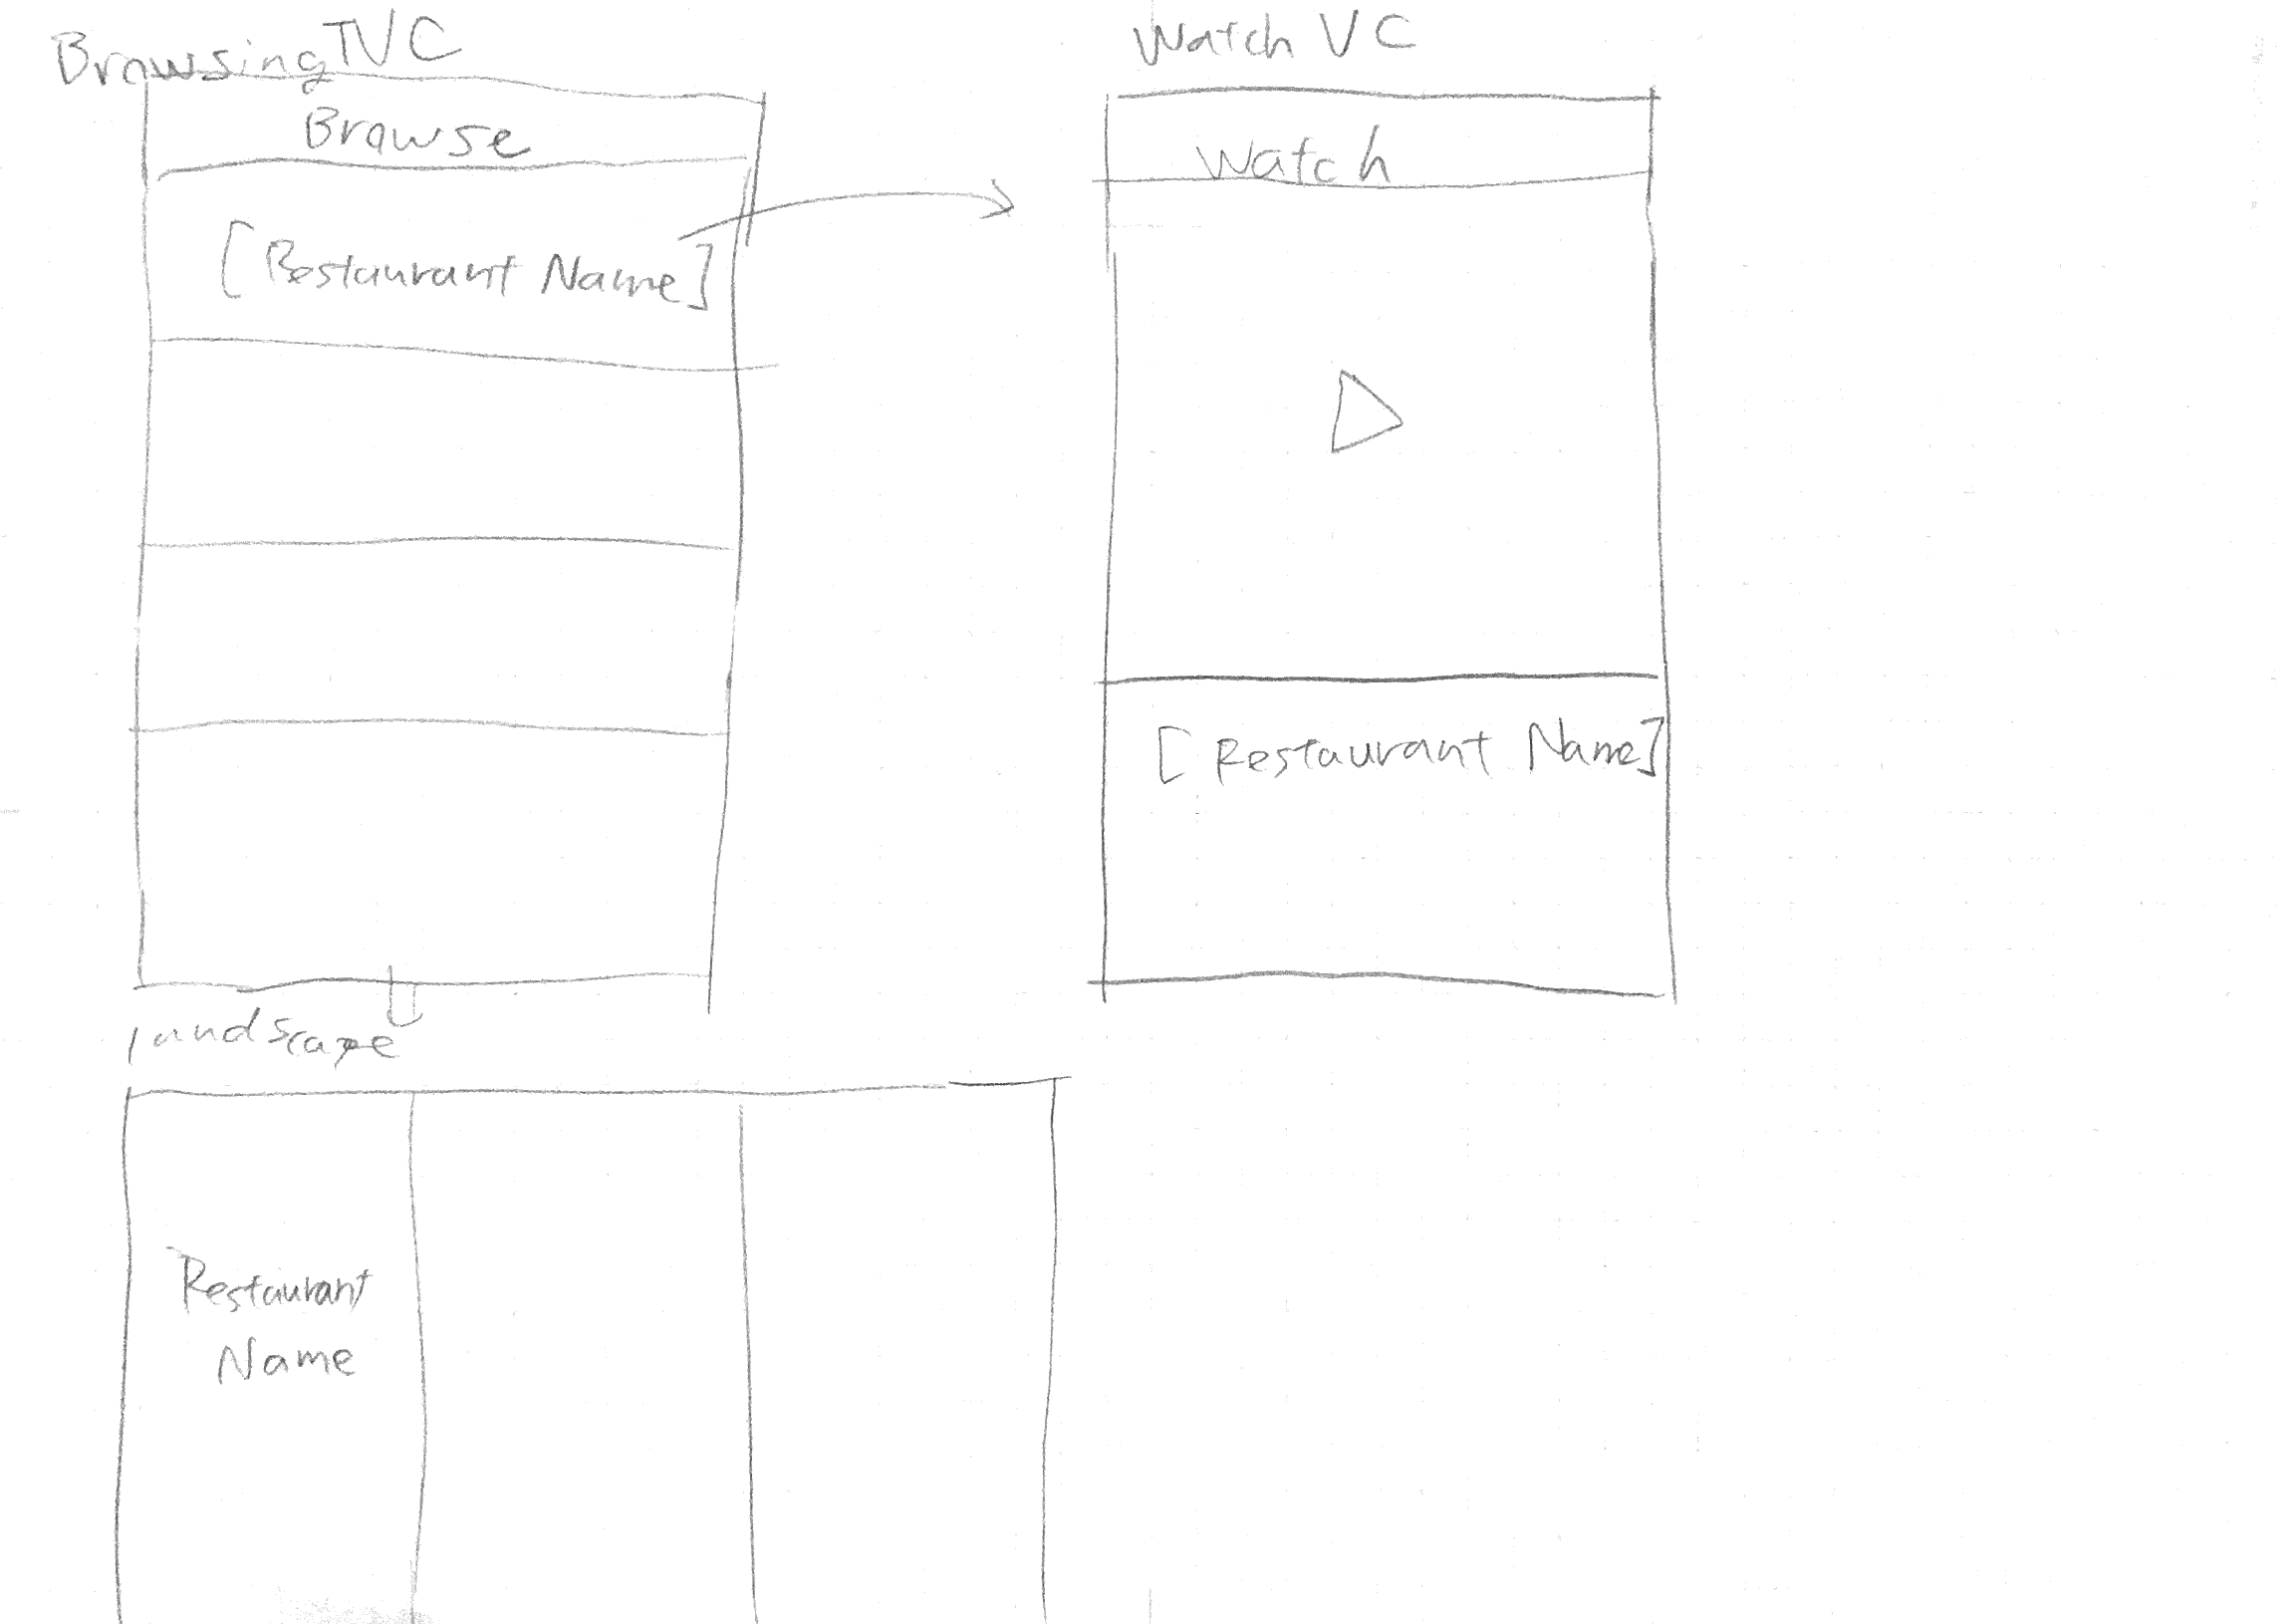 BrowsingTVC
Browse
[Restaurant Name]
Watch VC
Watch
[Restaurant Name]
landscape
Restaurant
Name